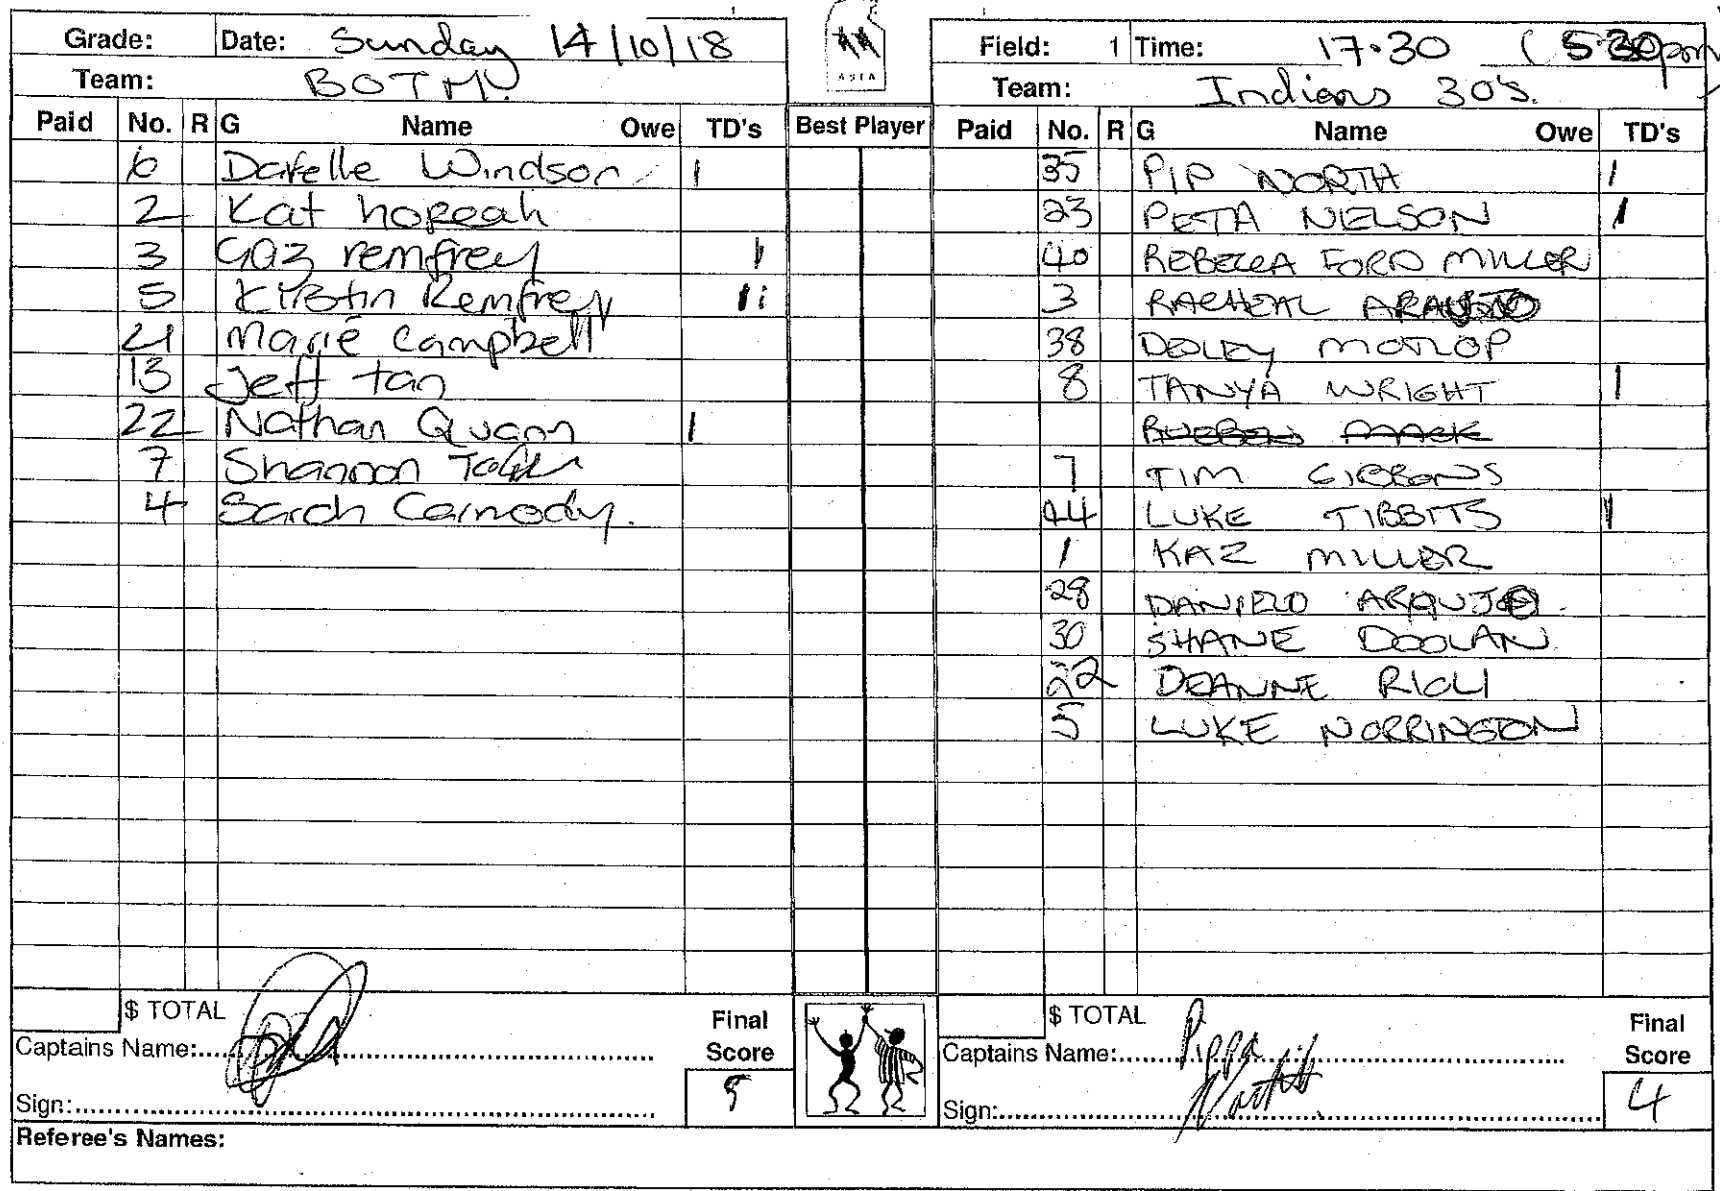 Grade: Date: Sunday 14/10/18
Team: BOTM.
Paid No. R G Name Owe TD's
6 Darelle Windson 1
2 Kat hopeah
3 Gaz remfrey 1
5 Kirstin Remfrey 11
21 Marie Campbell
13 Jeff tan
22 Nathan Quann 1
7 Shannon
4 Sarah Carmody.
$ TOTAL
Captains Name:
Final Score
5
Sign:
Referee's Names:
ASIA
Best Player
Field: 1 Time: 17.30 (5.30pm)
Team: Indians 30's.
Paid No. R G Name Owe TD's
35 PIP NORTH 1
23 PETA NIELSON 1
40 REBECCA FORD MILLER
3 RACHEAL ARAUJO
38 DEDLEY MOTLOP
8 TANYA WRIGHT 1
7 TIM GIBBONS
44 LUKE TIBBITS 1
1 KAZ MILLER
28 DANIELO ARAUJO.
30 SHANE DOOLAN
22 DEANNE RIGLI
5 LUKE NORRINGTON
$ TOTAL
Captains Name: Pippa
Final Score
4
Sign: North